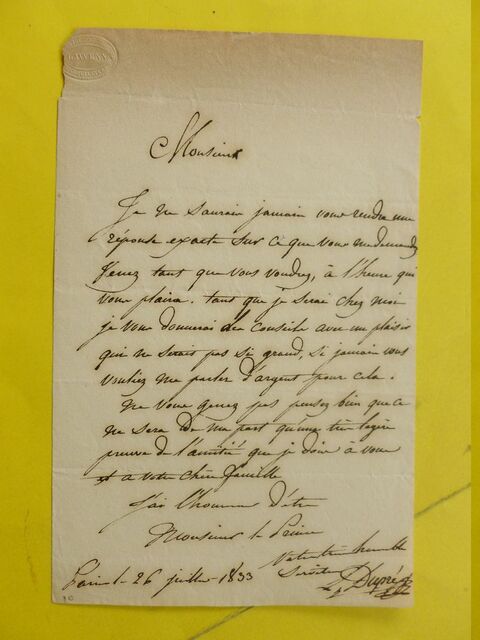 Monsieur
Je ne saurais jamais vous rendre une
réponse exacte sur ce que vous me demandez
Venez tant que vous voudrez, à l'heure qui
vous plaira. tant que je serai chez moi
je vous donnerai des Conseils avec un plaisir
qui ne serait pas si grand, si jamais vous
vouliez me parler d'argent pour cela.
Ne vous genez pas pensez bien que ce
ne sera de ma part qu'une très légère
preuve de l'amitié que je dois à vous
et a votre chère famille
J'ai l'honneur d'être
Monsieur le Prince
Votre très humble
Paris le 26 juillet 1833 Serviteur
Dupré